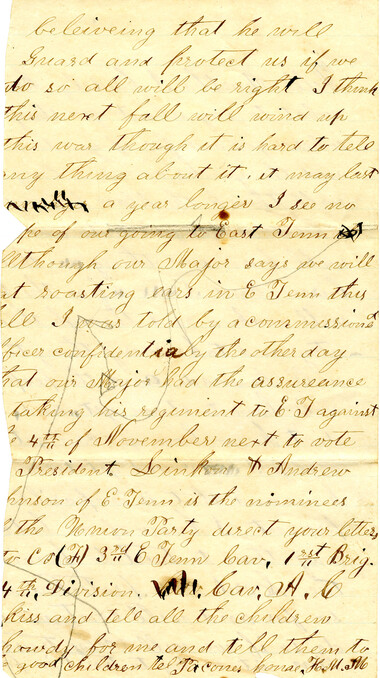 beleiveing that he will
Guard and protect us if we
do so all will be right I think
this next fall will wind up
this war though it is hard to tell
ny thing about it. it may last
a year longer I see no
pe of our going to East Tenn
lthough our Major says we will
at roasting ears in E Tenn this
all I was told by a commissioned
fficer confidentialy the other day
hat our Major had the assureance
taking his regiment to E. T against
e 4th of November next to vote
President. Linkon & Andrew
hnson of E. Tenn is the nominees
the Union Party direct your letters
to Co (H) 3rd E Tenn Cav. 1st Brig.
4th, Division. Cav, A, C
kiss and tell all the childrew
howdy for me and tell them to
good children tel H. M. M